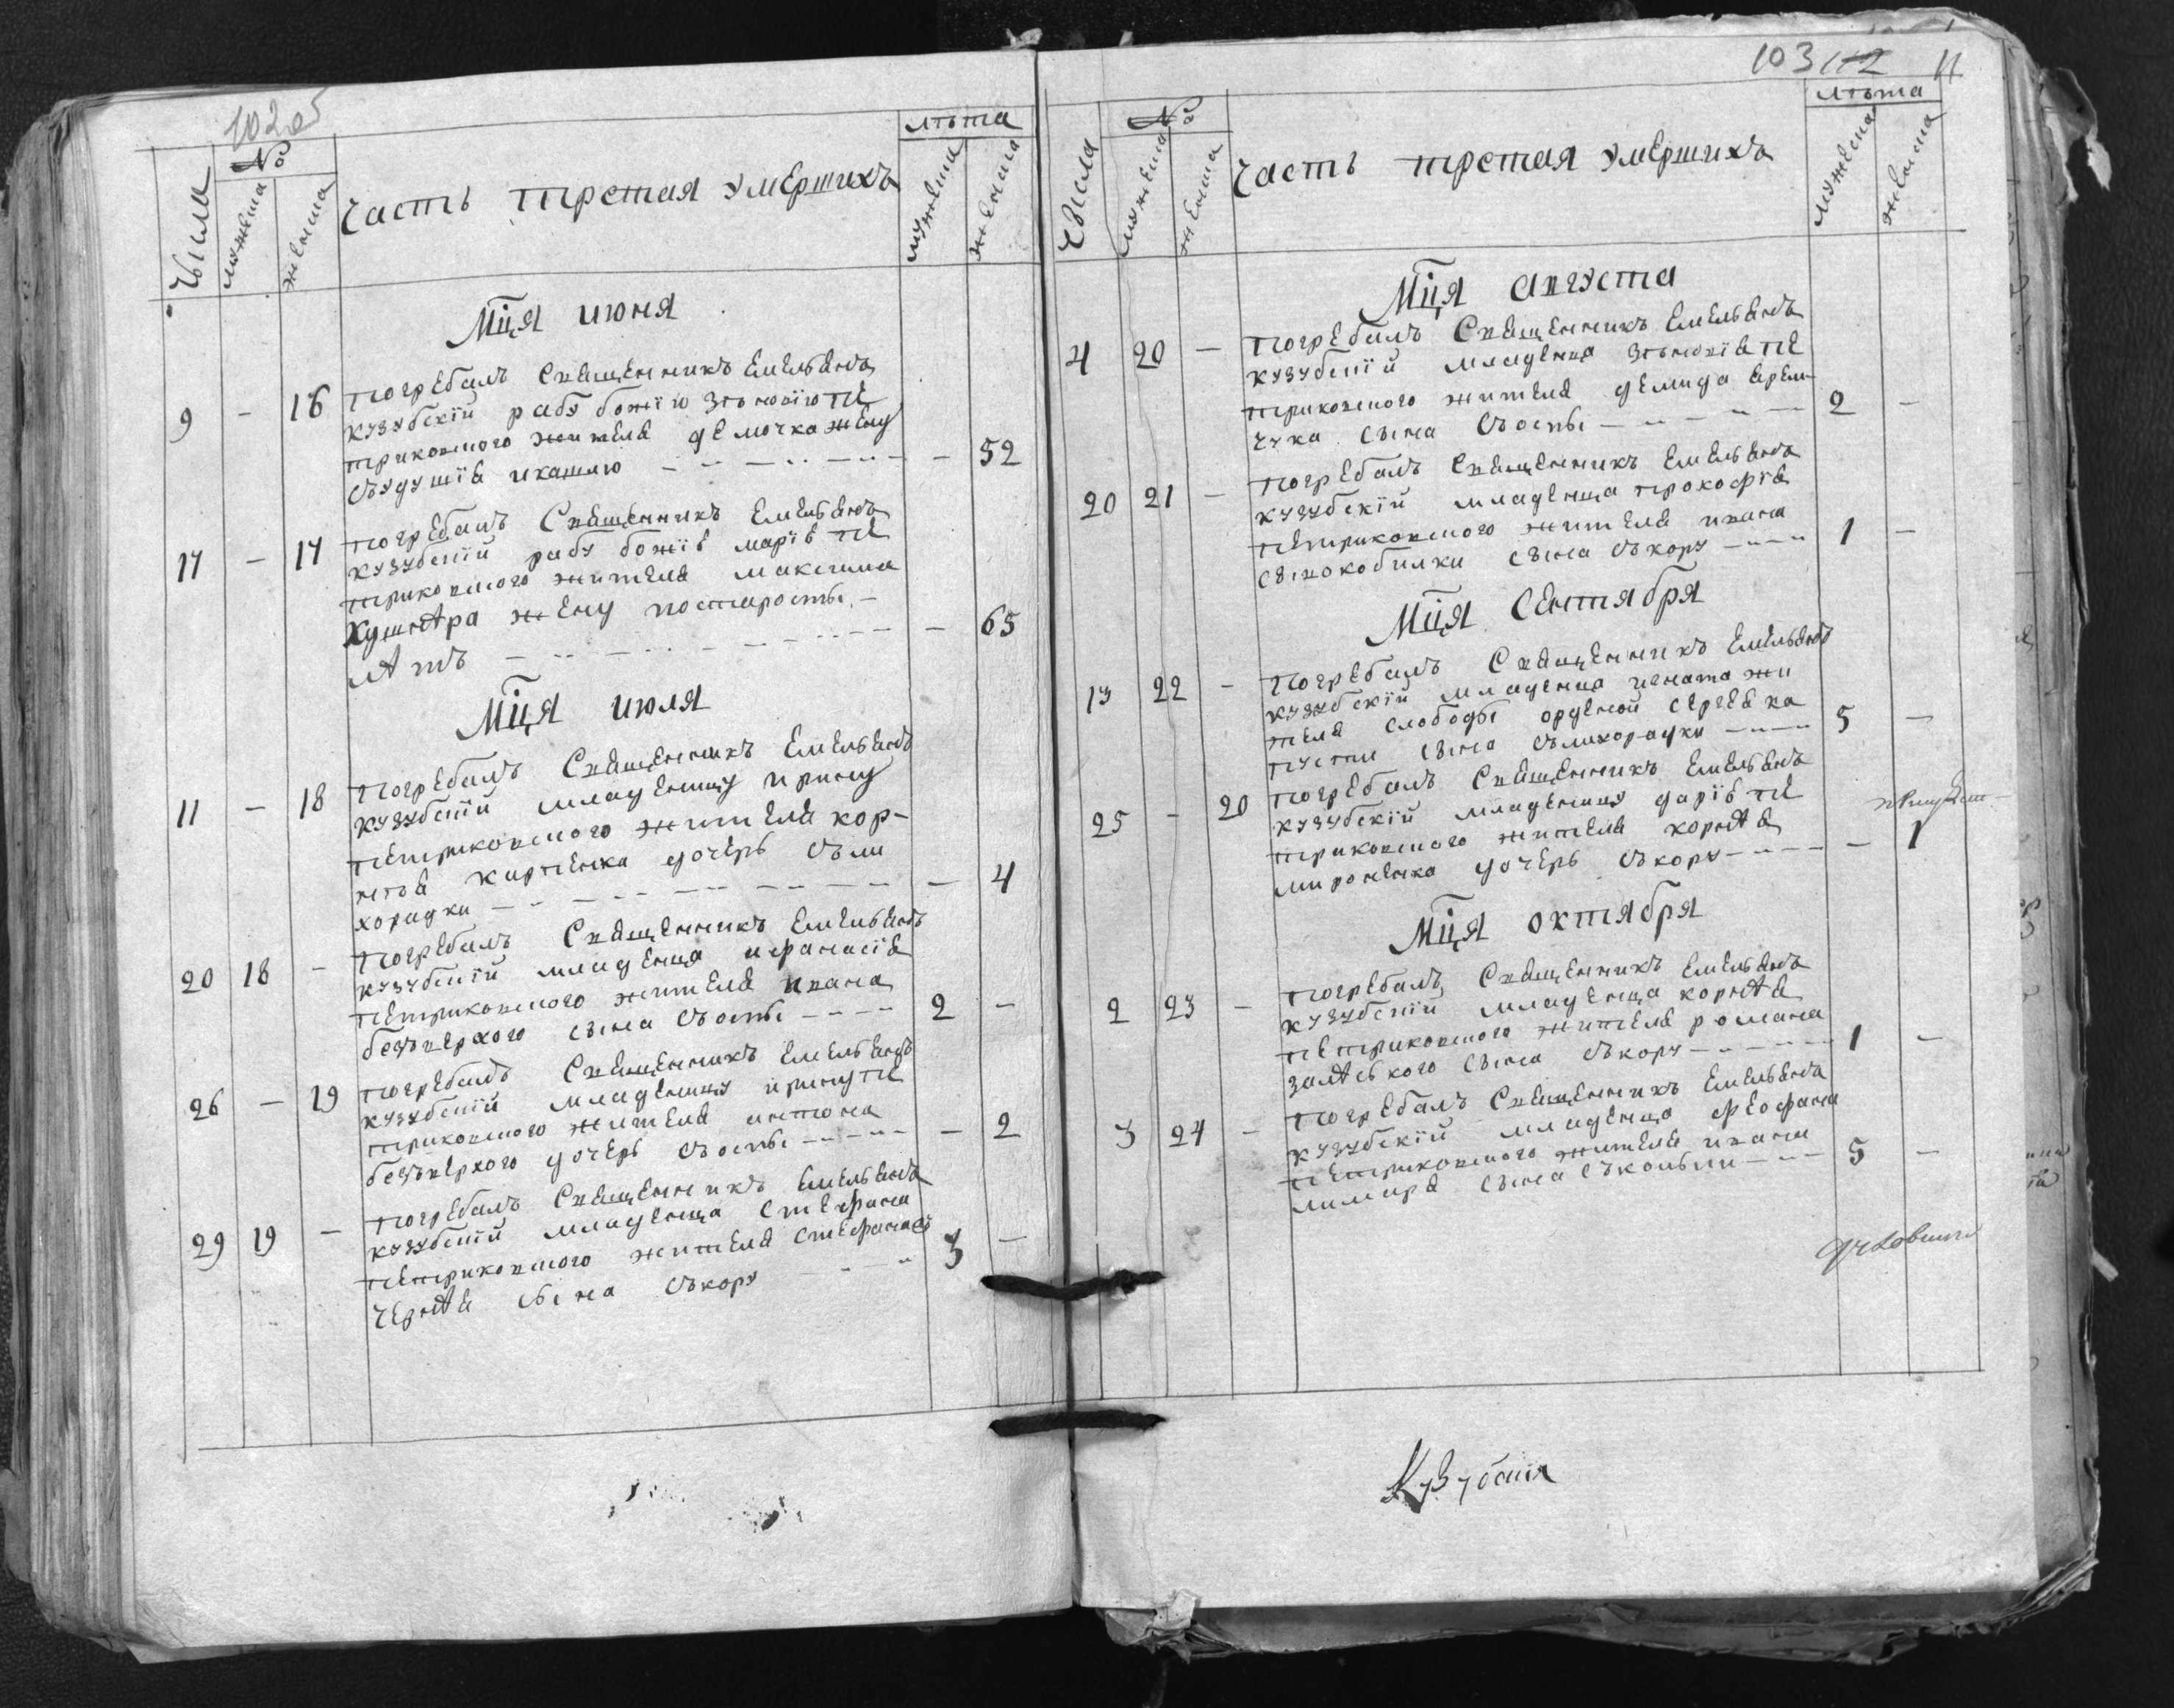 102об
Числа
№
мужеска
женска
Часть третая умершихъ
лѣта
мужеска
женска
Мц̃я июня
9 - 16 погребалъ Священникъ Емельянъ
кузубскій рабу божію зѣновію пе
триковского жителя демочка жену
съудушія икашлю - 52
17 - 17 погребалъ Священникъ Емельянъ
кузубскій рабу божія марія пе
триковского жителя максима
кушнѣра жену постарости
лѣтъ - 65
Мц̃я июля
11 - 18 погребалъ Священникъ Емельянъ
кузубскій младеницу ирину
петриковского жителя кор-
нѣя карпенка дочерь съли
хорадки - 4
20 18 - погребалъ Священникъ Емельянъ
кузубскій младенца афанасія
петриковского жителя ивана
безъверхого сына съоспы 2 -
26 - 19 погребалъ Священникъ Емельянъ
кузубскій младеницу ирину пе
триковского жителя антона
безъверхого дочерь съоспы - 2
29 19 - погребалъ Священникъ Емельянъ
кузубскій младенца стефана
петриковского жителя стефана
чернѣя сына съкору 3 -
103 112 11
Числа
№
мужеска
женска
Часть третая умершихъ
лѣта
мужеска
женска
Мц̃я августа
4 20 - погребалъ Священникъ Емельянъ
кузубскій младенца зѣновія пе
триковского жителя демида ярем
чука сына съоспы 2 -
20 21 - погребалъ Священникъ Емельянъ
кузубскій младенца прокофія
петриковского жителя ивана
сывокобилки сына съкору 1 -
Мц̃я Сентября
13 22 - погребалъ Священникъ Емельянъ
кузубскій младенца игната жи
теля слободы орденой сергея ка
пусти сына съликорадки 5 -
25 - 20 погребалъ Священникъ Емельянъ
кузубскій младеницу дарія пе
триковского жителя корнѣя
мироненка дочерь съкору - 1
Мц̃я октября
2 23 - погребалъ Священникъ Емельянъ
кузубскій младенца корнѣя
петриковского жителя романа
залѣского сына съкору 1 -
3 24 - погребалъ Священникъ Емельянъ
кузубскій младенца феофана
петриковского жителя ивана
лимара сына съкольки 5 -
Кузубскій